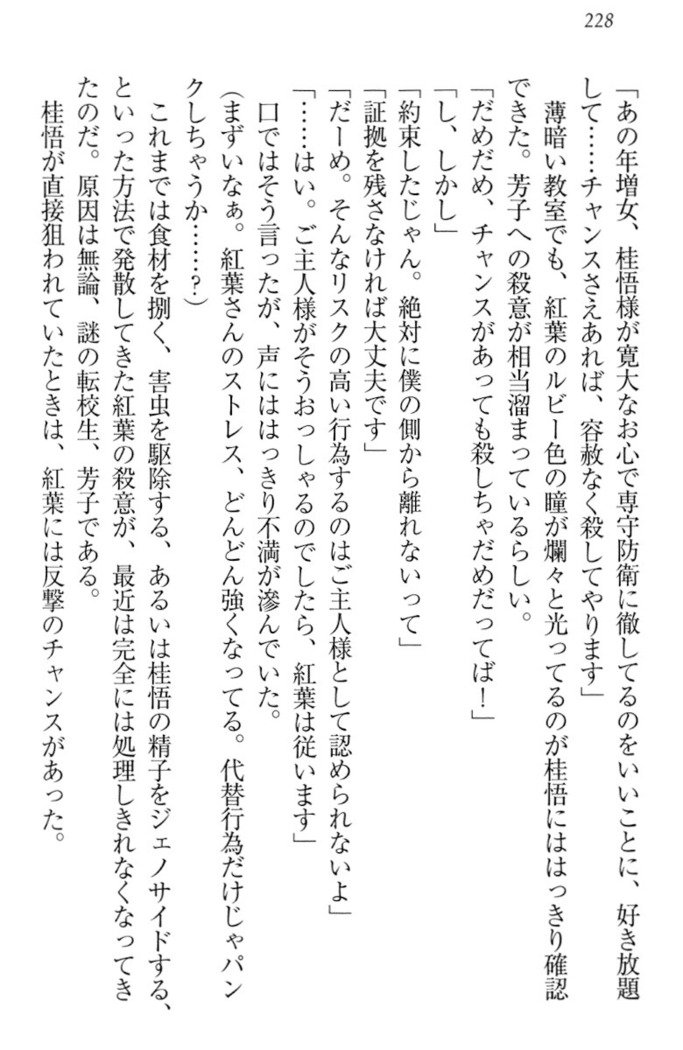 228
「あの年増女、桂悟様が寛大なお心で専守防衛に徹してるのをいいことに、好き放題
して……チャンスさえあれば、容赦なく殺してやります」
　薄暗い教室でも、紅葉のルビー色の瞳が爛々と光ってるのが桂悟にははっきり確認
できた。芳子への殺意が相当溜まっているらしい。
「だめだめ、チャンスがあっても殺しちゃだめだってば！」
「し、しかし」
「約束したじゃん。絶対に僕の側から離れないって」
「証拠を残さなければ大丈夫です」
「だーめ。そんなリスクの高い行為するのはご主人様として認められないよ」
「……はい。ご主人様がそうおっしゃるのでしたら、紅葉は従います」
　口ではそう言ったが、声にははっきり不満が滲んでいた。
（まずいなぁ。紅葉さんのストレス、どんどん強くなってる。代替行為だけじゃパン
クしちゃうか……？）
　これまでは食材を捌く、害虫を駆除する、あるいは桂悟の精子をジェノサイドする、
といった方法で発散してきた紅葉の殺意が、最近は完全には処理しきれなくなってき
たのだ。原因は無論、謎の転校生、芳子である。
　桂悟が直接狙われていたときは、紅葉には反撃のチャンスがあった。